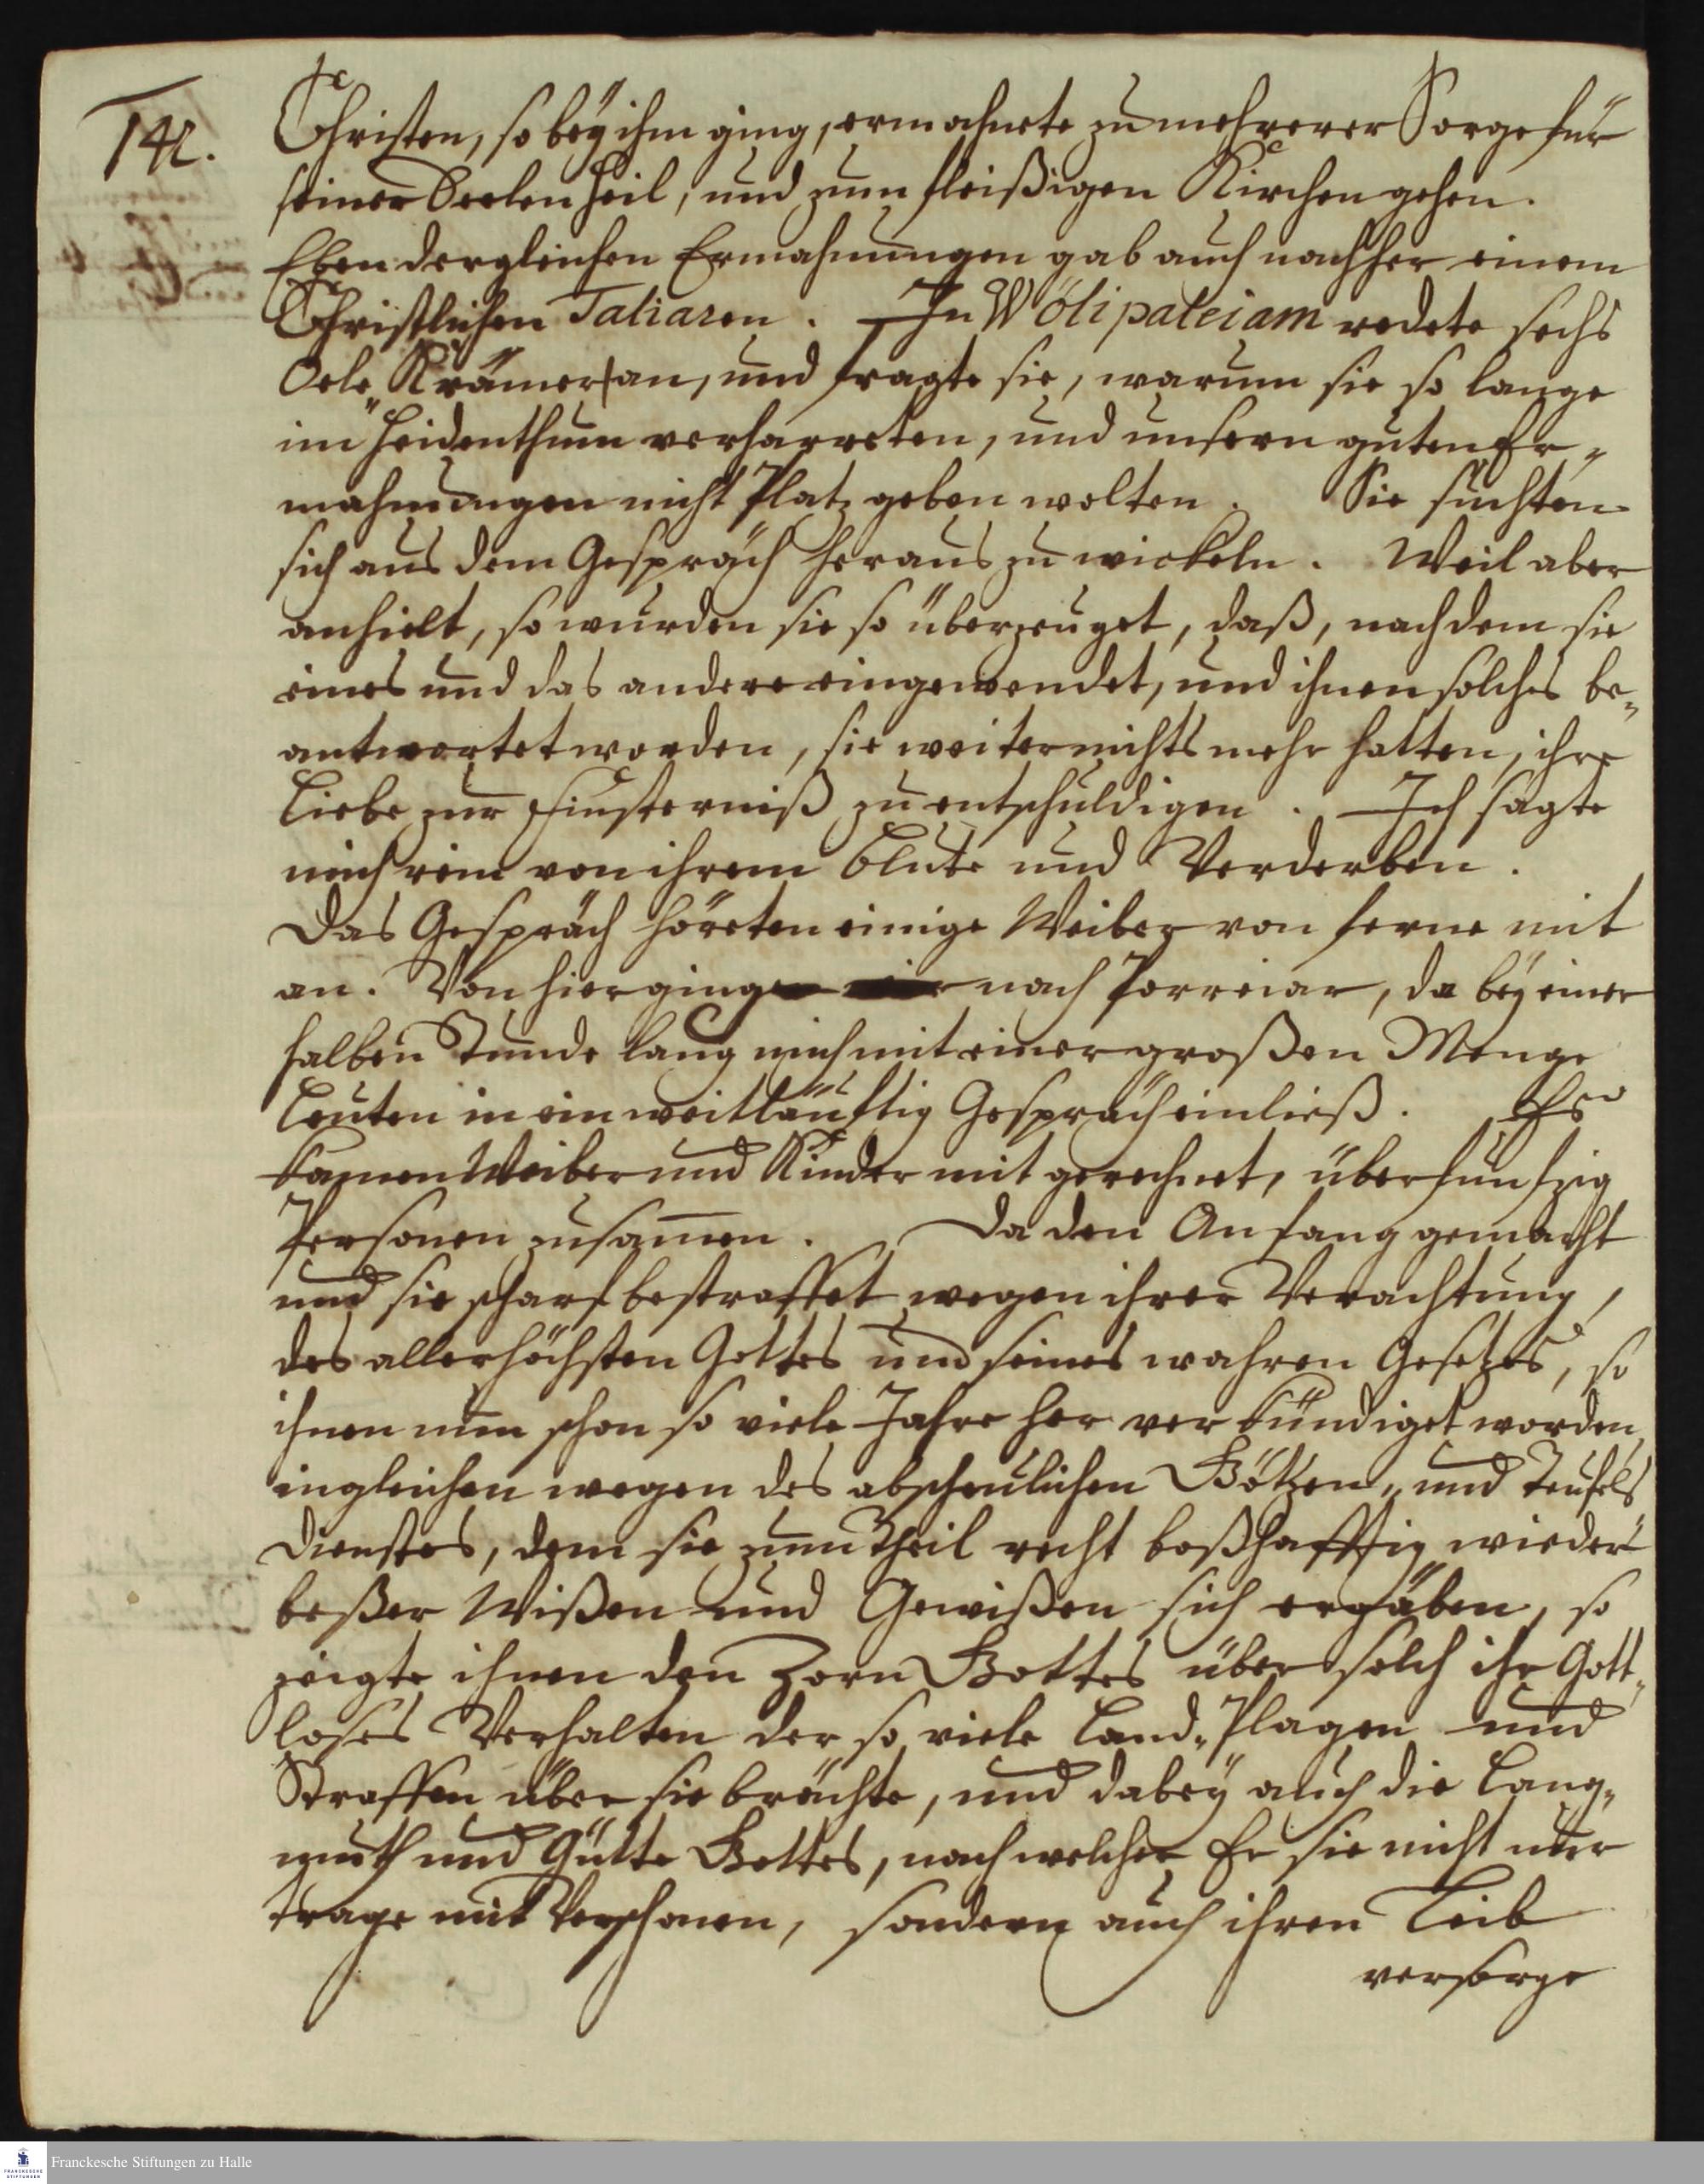 142.
Christen, so bey ihm ging, ermahnete zu mehrerer Sorge für
seiner Seelen Heil, und zum fleißigen Kirchen gehen.
Eben dergleichen Ermahnungen gab auch nachher einem
Christlichen Taliaren. In Wölipaleiam redete sechs
Oele Krämer an, und fragte sie, warum sie so lange
im Heidenthum verharreten, und unsern guten Er-
mahnungen nicht Platz geben wolten. Sie suchten
sich aus dem Gespräch heraus zu wickeln. Weil aber
anhielt, so wurden sie so überzeuget, daß, nachdem sie
eines und das andere eingewendet, und ihnen solches be-
antwortet worden, sie weiter nichts mehr hatten, ihre
Liebe zur Finsterniß zu entschuldigen. Ich sagte
mich rein von ihrem Blute und Verderben.
Das Gespräch höreten einige Weiber von ferne mit
an. Von hier ging nach Porreiar, da bey einer
halben Stunde lang mich mit einer großen Menge
Leuten in ein weitläufftig Gespräch einließ. Es
kamen Weiber und Kinder mit gerechnet, über funfzig
Personen zusam̄en. Da den Anfang gemacht
und sie scharf bestraffet wegen ihrer Verachtung,
des allerhöchsten Gottes und seines wahren Gesetzes, so
ihnen nun schon so viele Jahre her verkündiget worden,
ingleichen wegen des abscheulichen Götzen- und Teufels
Dienstes, dem sie zum Theil recht boßhafftig wieder
beßer Wißen und Gewißen sich ergäben, so
zeigte ihnen den Zorn Gottes über solch ihr Gott-
loses Verhalten der so viele Land-Plagen und
Straffen über sie brächte, und dabey auch die Lang-
muth und Gütte Gottes, nach welcher Er sie nicht nur
trage mit Verschonen, sondern auch ihren Leib
versorge
Franckesche Stiftungen zu Halle